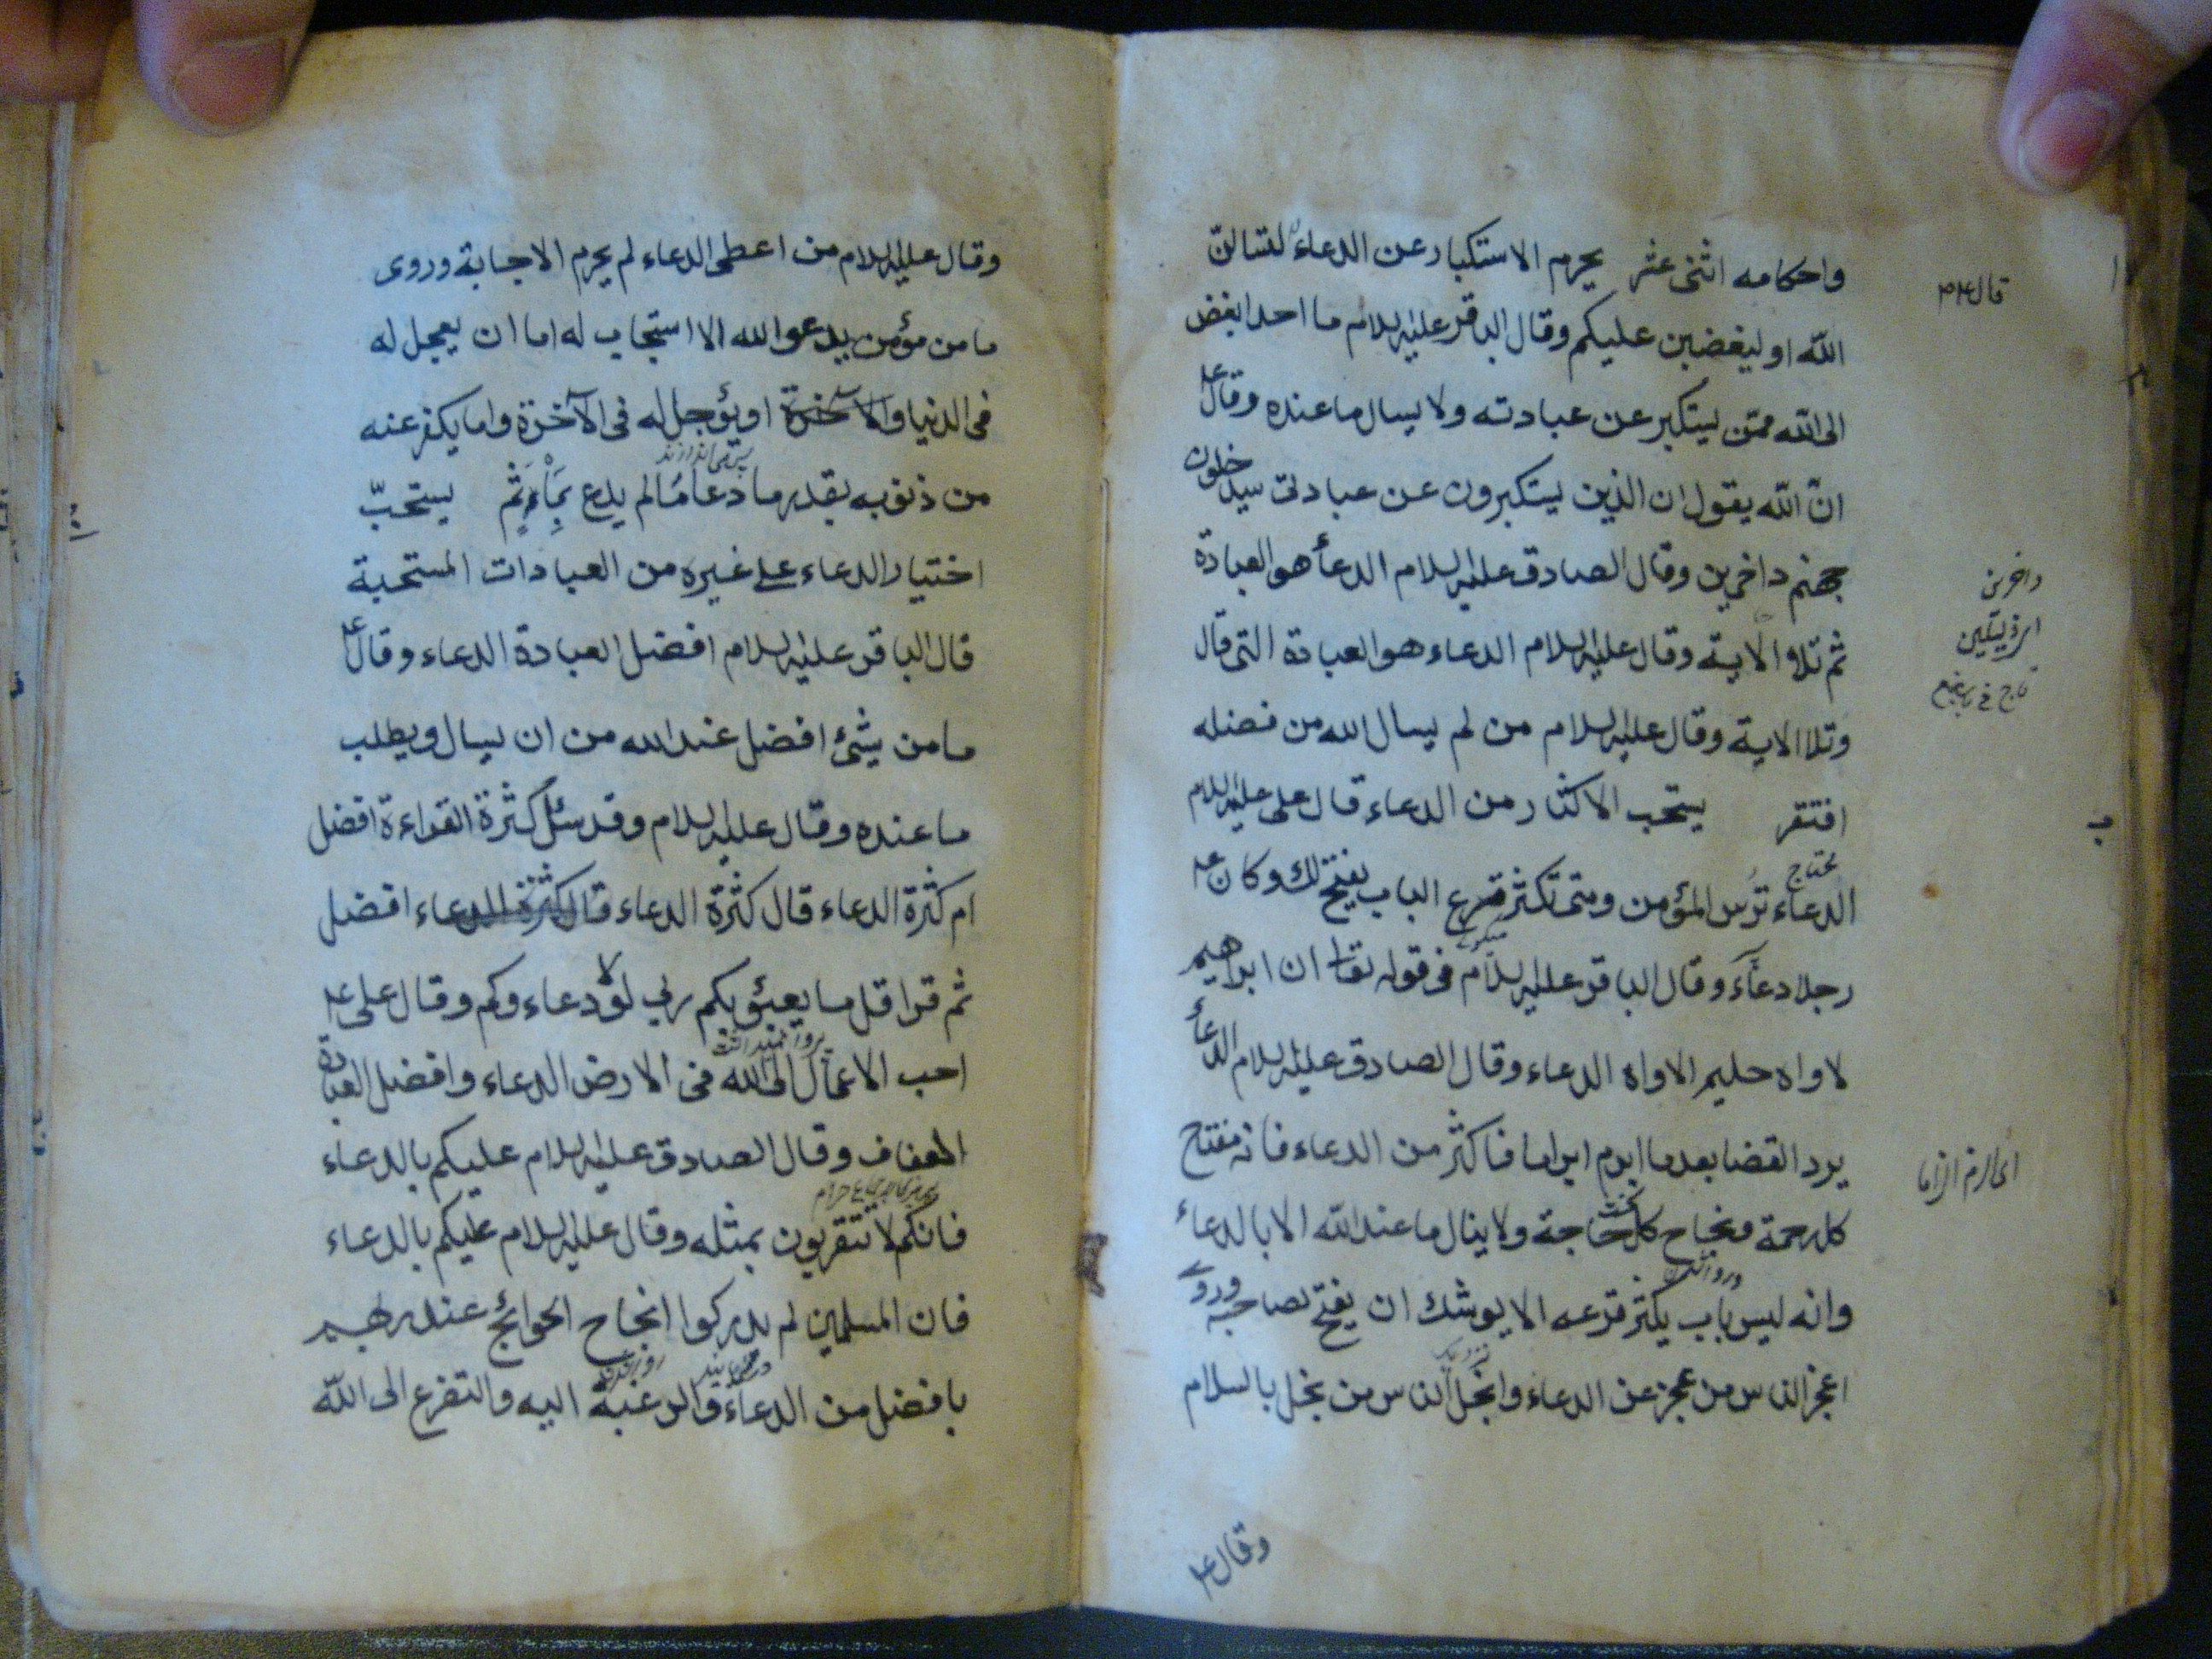 واحكامه اثنى عشر يحرم الاستكبار عن الدعاء لتسالن
الله او ليغضبن عليكم وقال الباقر عليه السلام ما احد ابغض
الى الله ممن يستكبر عن عبادته ولا يسال ما عنده وقال ع
ان الله يقول ان الذين يستكبرون عن عبادتى سيدخلون
جهنم داخرين وقال الصادق عليه السلام الدعأ هو العبادة
ثم تلا الاية وقال عليه السلام الدعاء هو العبادة التى قال
وتلا الاية وقال عليه السلام من لم يسال الله من فضله
افتقر يستحب الاكثار من الدعاء قال على عليه السلام
محتاج
الدعاء ترس المؤمن ومتى تكثر قرع الباب يفتح لك وكان ع
رجلا دعاء وقال الباقر عليه السلام فى قوله تعالى ان ابراهيم
لاواه حليم الاواه الدعاء وقال الصادق عليه السلام الدعأ
يرد القضا بعد ما ابرم ابراما فاكثر من الدعاء فانه مفتاح
كل رحمة ونجاح كل حاجة ولا ينال ما عند الله الا بالدعاء
وانه ليس باب يكثر قرعه الا يوشك ان يفتح لصاحبه وروى
اعجز الناس من عجز عن الدعاء وابخل الناس من بخل بالسلام
وقال ع
داخرين
وقال عليه السلام من اعطى الدعاء لم يحرم الاجابة وروى
ما من مؤمن يدعو الله الا استجاب له اما ان يعجل له
فى الدنيا والآخرة او يؤجل له فى الآخرة واما يكفر عنه
من ذنوبه بقدر ما دعا ما لم يدع بمأثم يستحبّ
اختيار الدعاء على غيره من العبادات المستحبة
قال الباقر عليه السلام افضل العبادة الدعاء وقال ع
ما من شئ افضل عند الله من ان يسال ويطلب
ما عنده وقال عليه السلام وقد سئل كثرة القراءة افضل
ام كثرة الدعاء قال كثرة الدعاء قال كثرة الدعاء افضل
ثم قرا قل ما يعبؤ بكم ربى لولا دعاءوكم وقال على ع
احب الاعمال الى الله فى الارض الدعاء وافضل العبادة
العفاف وقال الصادق عليه السلام عليكم بالدعاء
فانكم لا تتقربون بمثله وقال عليه السلام عليكم بالدعاء
فان المسلمين لم يدركوا انجاح الحوائج عند ربهم
بافضل من الدعاء والرغبة اليه والتضرع الى الله